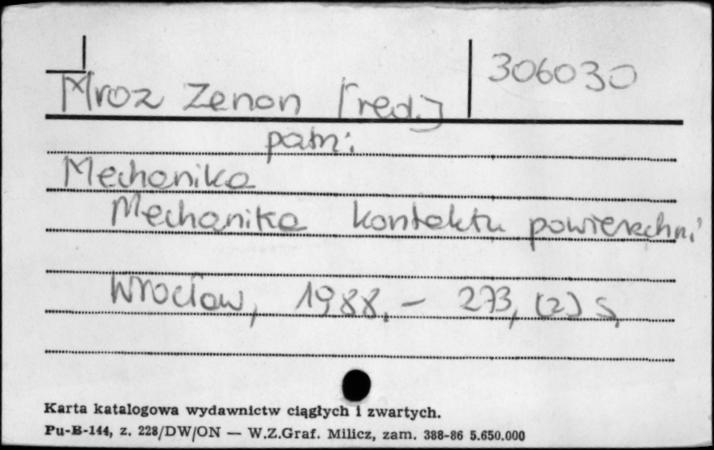 306030
Mroz Zenon [red.]
patrz:
Mechanika
Mechanika kontaktu powierzchni
Wrocław, 1988. – 273, [2] s.
Karta katalogowa wydawnictw ciągłych i zwartych.
Pu-B-144, z. 228/DW/ON — W.Z.Graf. Milicz, zam. 388-86 5.650.000